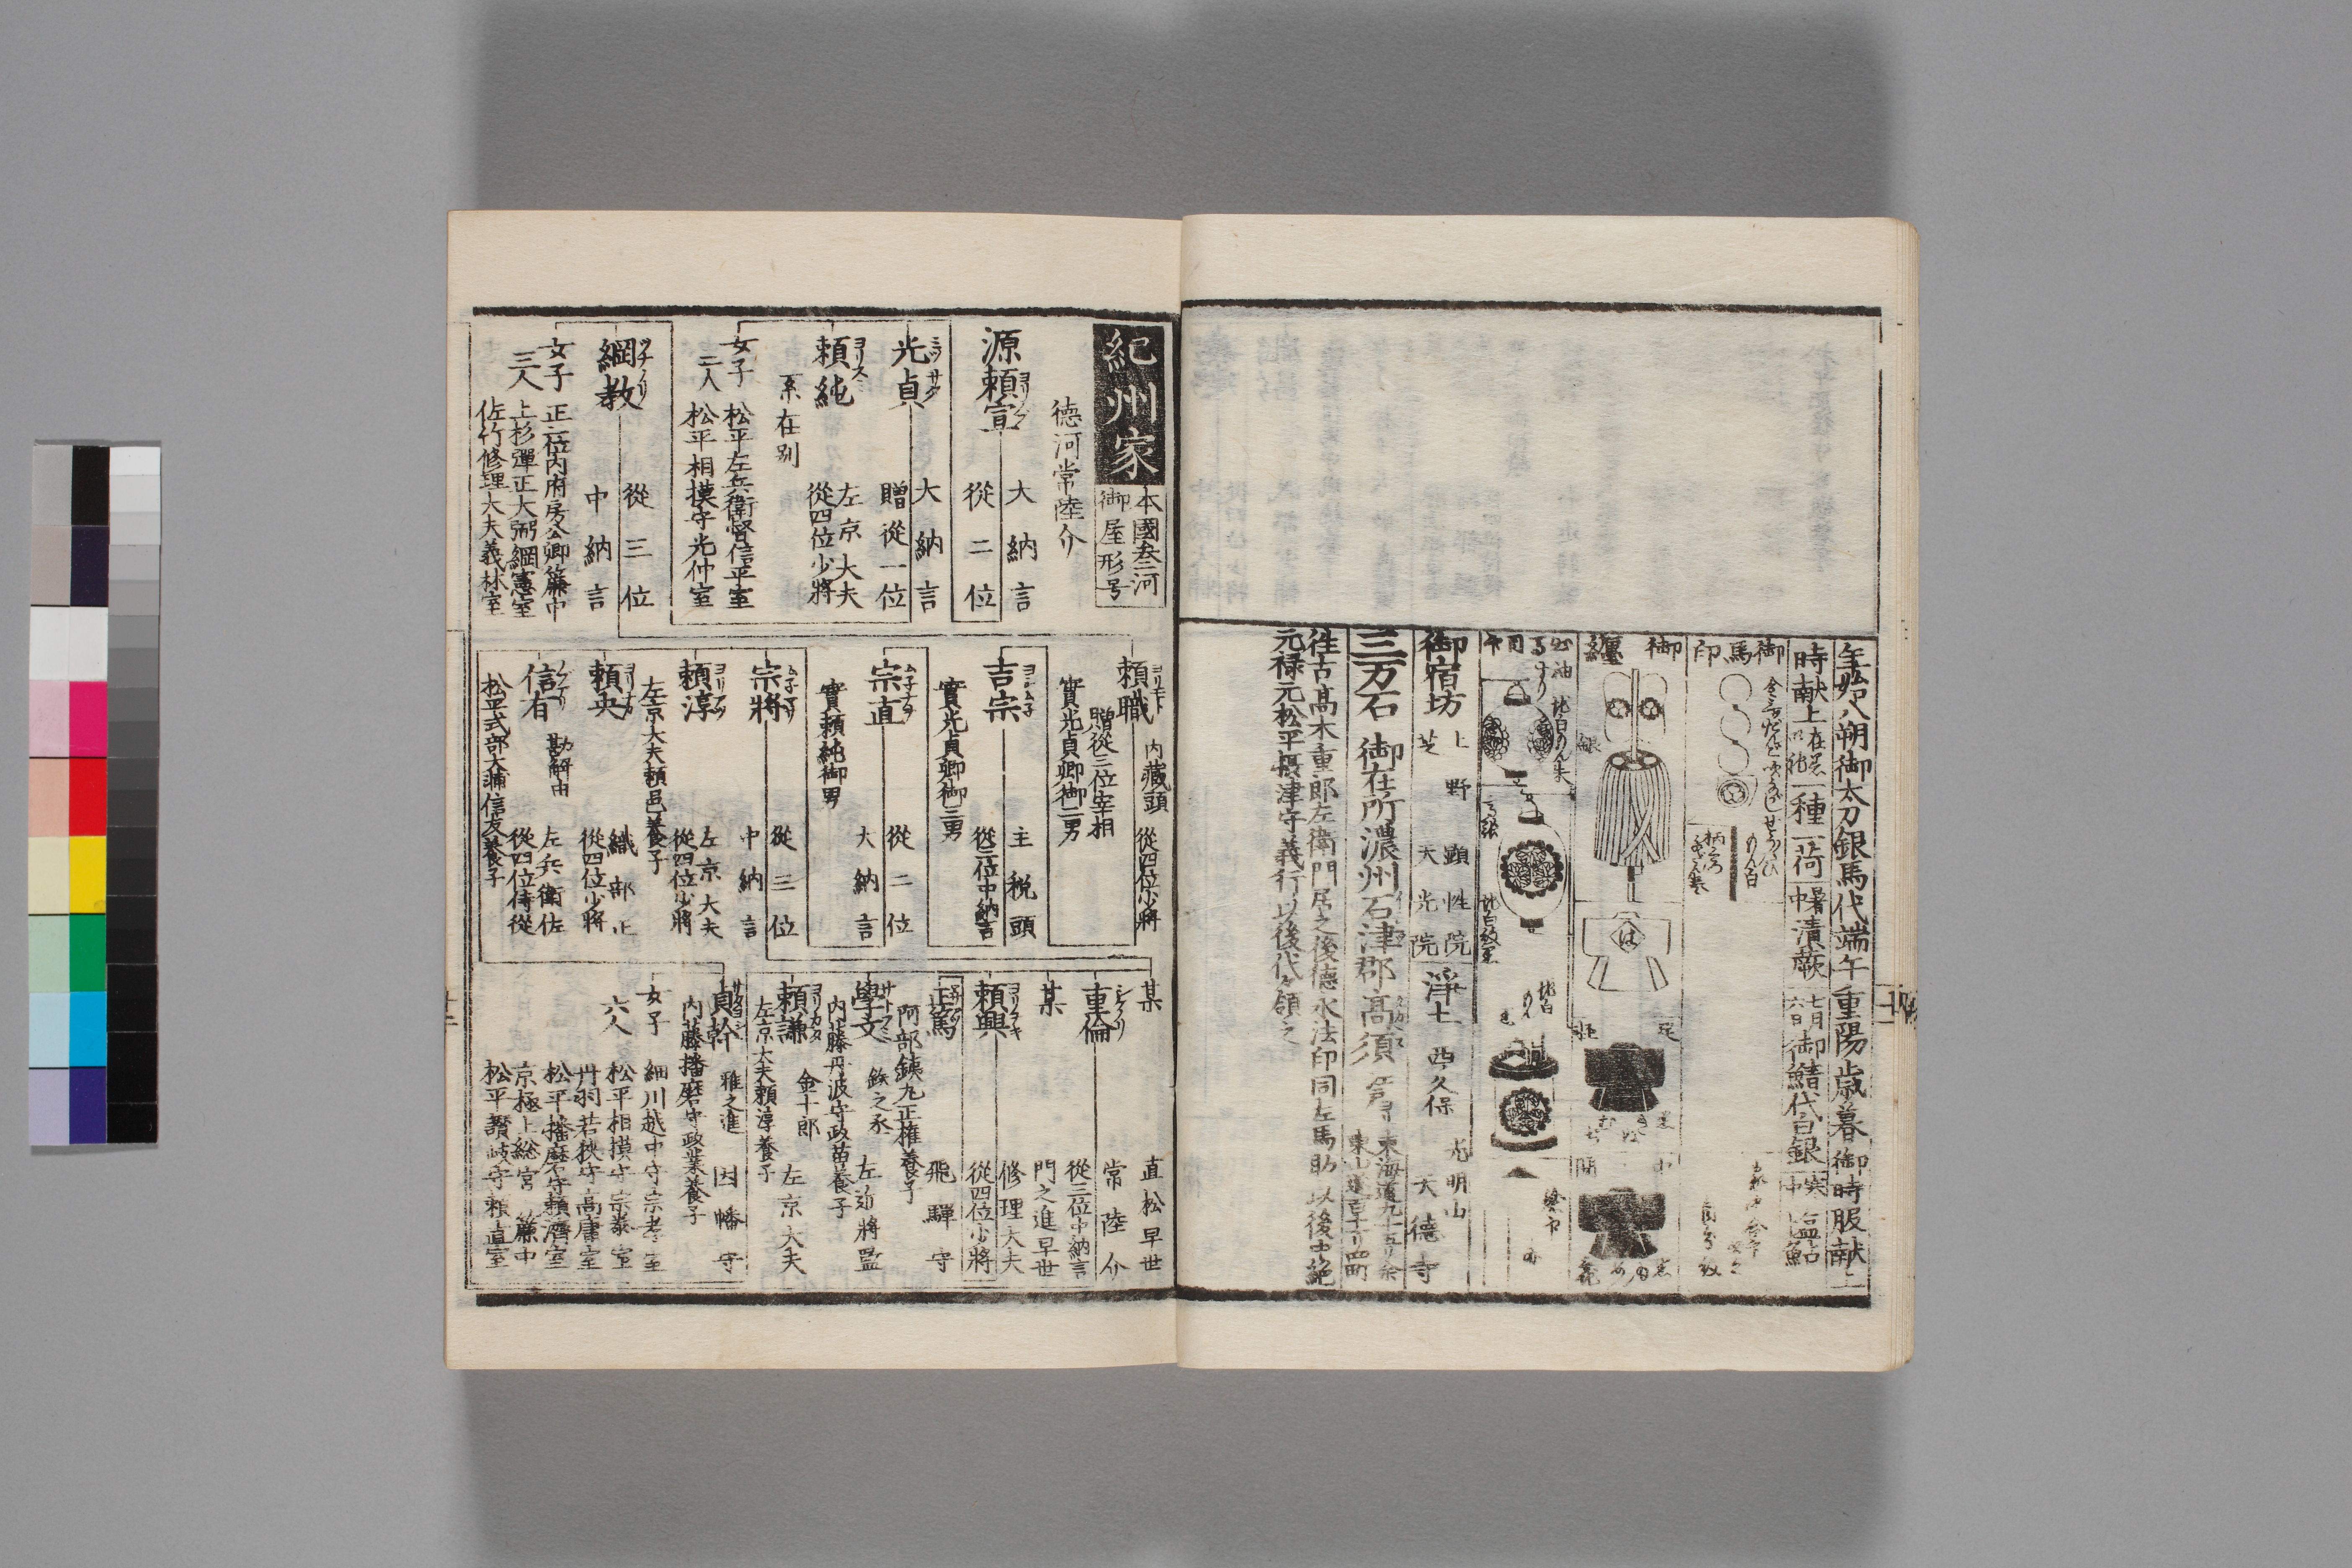 年始八朔御太刀銀馬代端午重陽歳暮御時服献上
時献上
一種一荷
暑中
漬蕨
七月六日
御鯖代白銀
寒中
塩鮎
御馬印
御纏
銀
は
御宿坊
上野
顕性院
芝
天光院
浄土
西久保
光明山
天徳寺
三万石
御在所濃州石津郡高須
江戸ヨリ
東海道九十五リ余
東山道百十リ四町
往古高木十郎左衛門居之後徳永法印同左馬助以後中絶
元禄元松平摂津守義行以後代々領之
紀州家
本國参河
御屋形号
徳河常陸介
源頼宣
大納言
從二位
光貞
ミツサダ
大納言
贈從一位
頼純
ヨリズミ
左京大夫
從四位少將
系在別
女子
二人
松平左兵衛督信平室
松平相摸守光仲室
綱教
ツナノリ
從三位
中納言
女子
三人
正二位内府房公卿簾中
上杉彈正大弼綱憲室
佐竹修理大夫義林室
頼職
ヨリモト
内藏頭
從四位少將
贈從三位宰相
實光貞卿御二男
吉宗
ヨシムネ
主税頭
從三位中納言
實光貞卿御三男
宗直
ムネナヲ
從二位
大納言
實頼純御男
宗將
ムネマサ
從三位
中納言
頼淳
ヨリアツ
左京大夫
從四位少將
左京大夫頼邑養子
頼央
織部正
從四位少將
信有
勘解由
左兵衛佐
從四位侍從
松平式部大輔信友養子
某
直松早世
重倫
シゲノリ
常陸介
從三位中納言
某
門之進早世
頼興
ヨリヲキ
修理大夫
從四位少將
正篤
飛騨守
阿部銕丸正権養子
學文
サトフミ
銕之丞
左近將監
内藤丹波守政苗養子
頼謙
ヨリカタ
金十郎
左京大夫
左京大夫頼淳養子
貞幹
サダヨシ
雅之進
因幡守
内藤播磨守政業養子
女子
六人
細川越中守宗孝室
松平相摸守宗泰室
丹羽若狭守高庸室
松平播磨守頼濟室
京極上総宮簾中
松平讃岐守頼直室